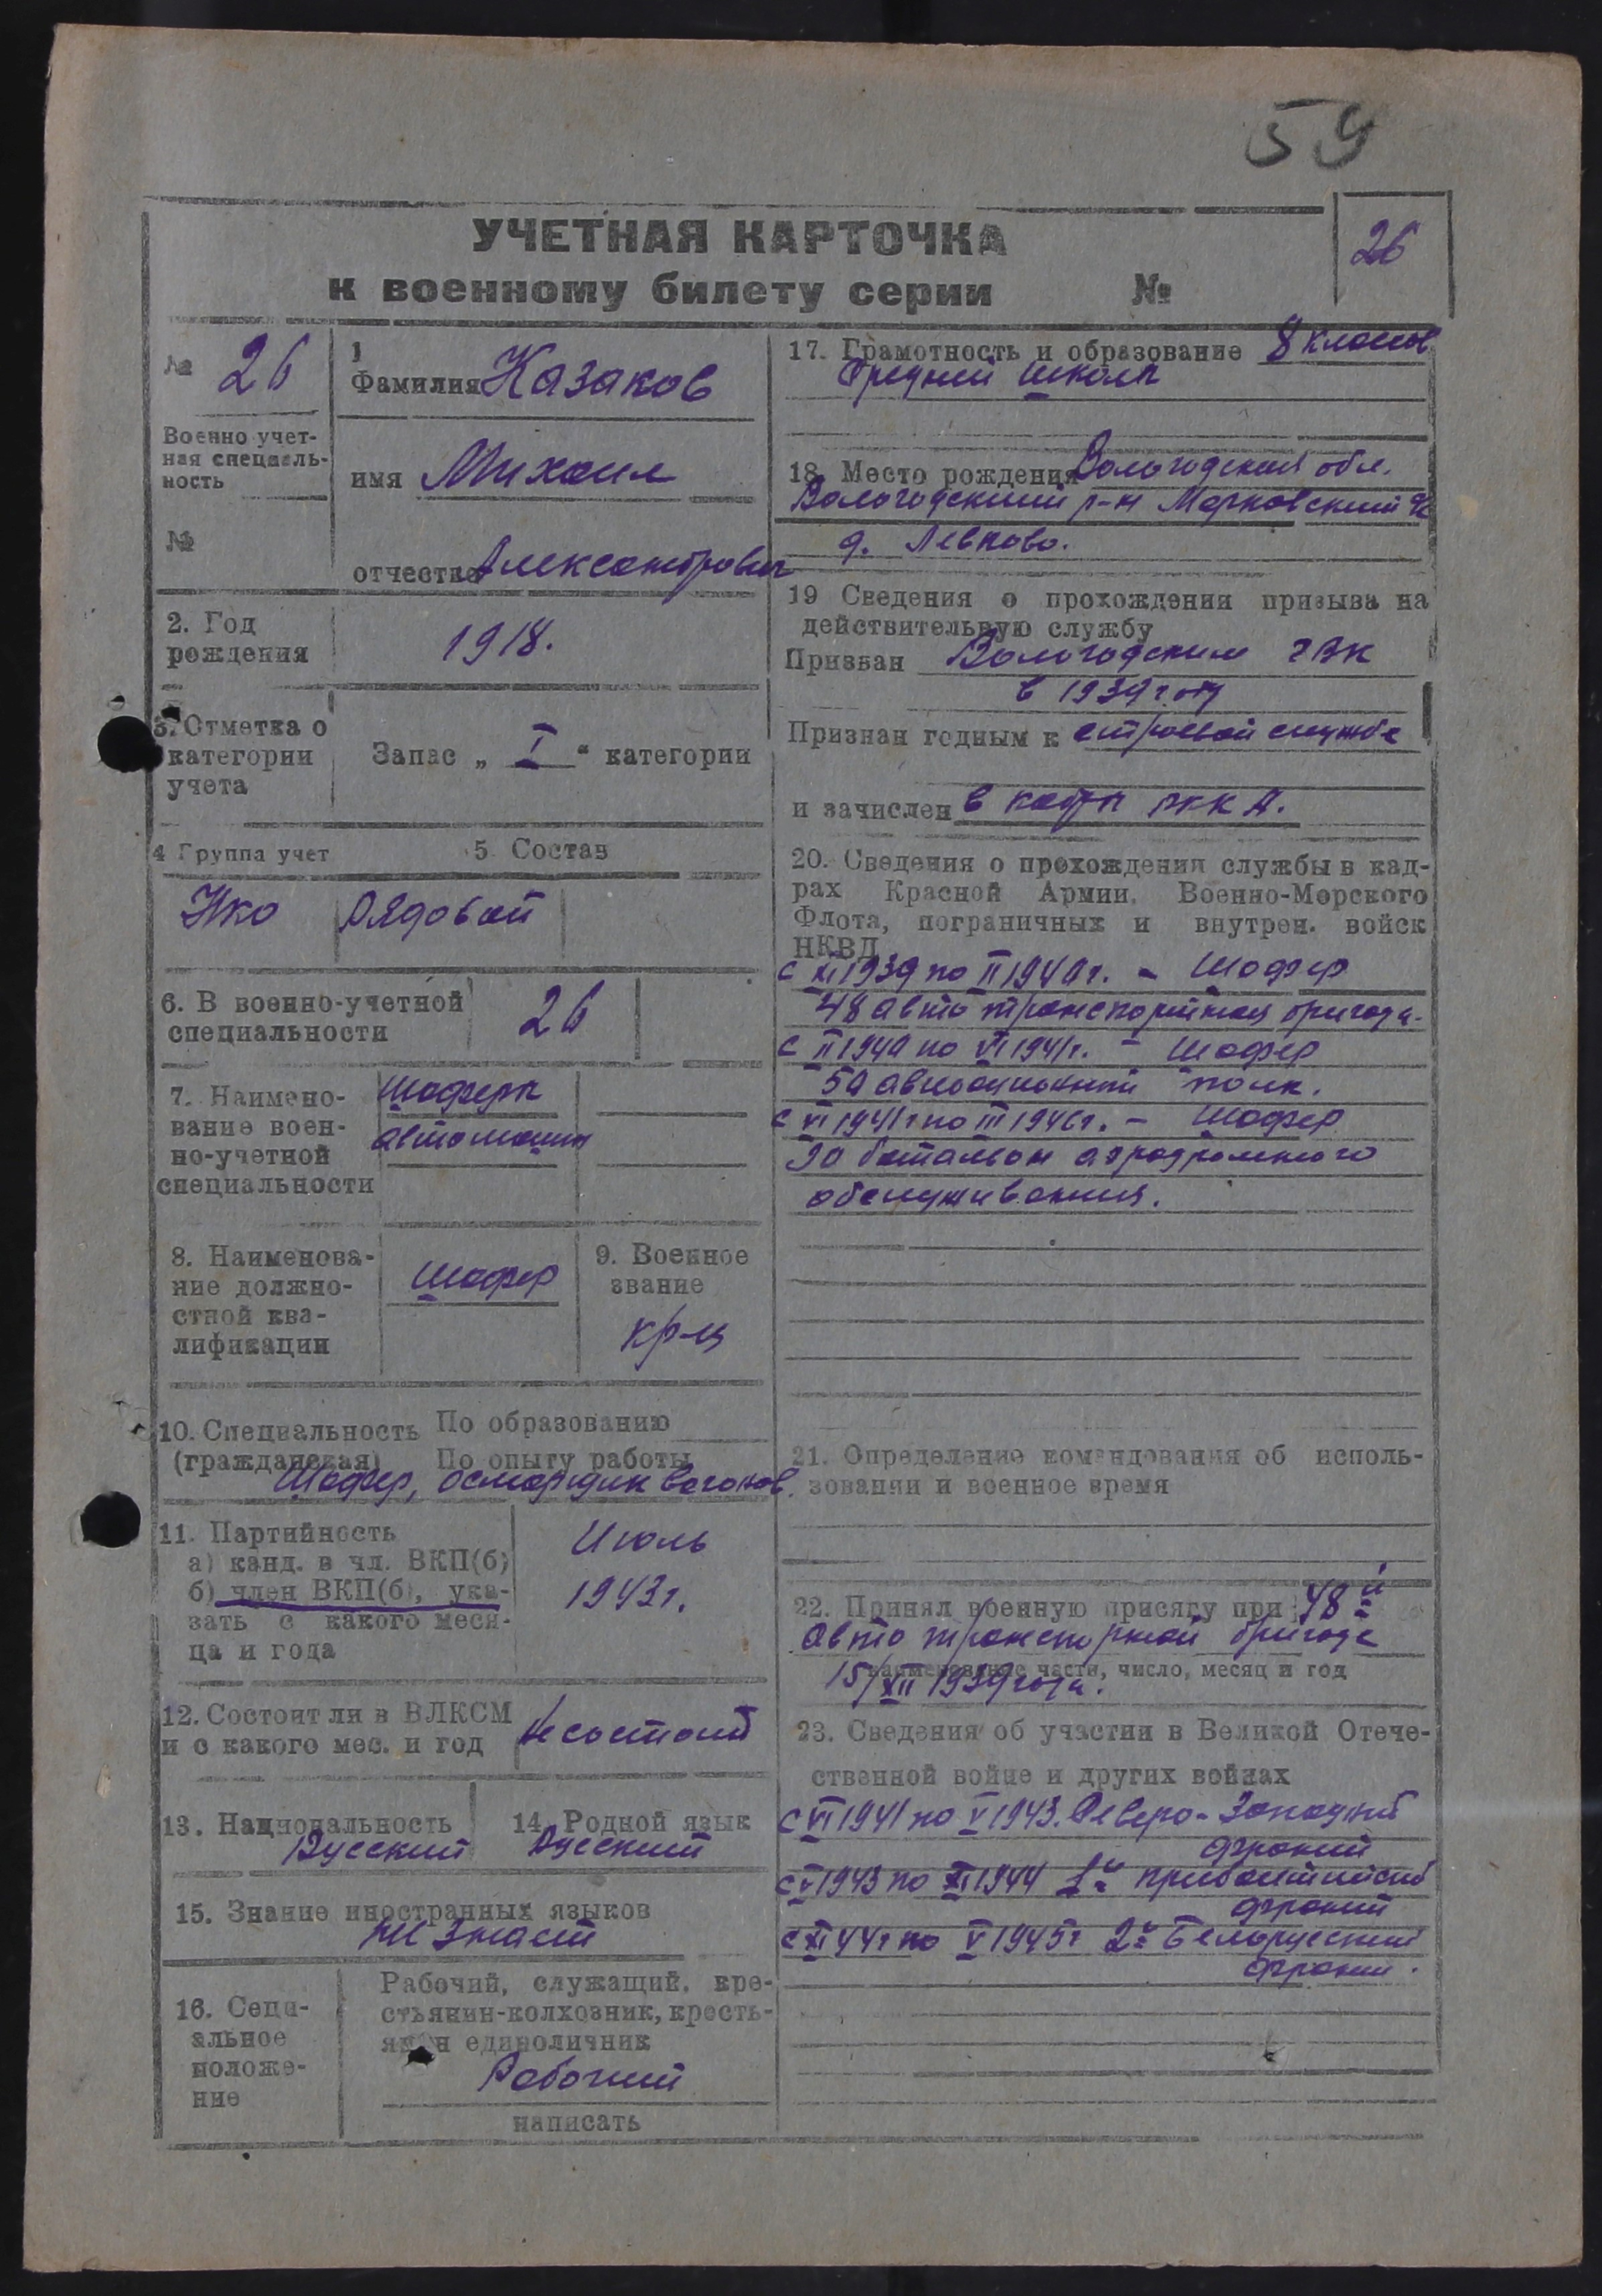 59
УЧЕТНАЯ КАРТОЧКА
к военному билету серии №
26
№ 26
Военно учет-
ная специаль-
ность
№
1
Фамилия Казаков
имя Михаил
отчество Александрович
2. Год
рождения
1918.
3. Отметка о
категории
учета
Запас „ I “ категории
4 Группа учет
5. Состав
Нко
Рядовой
6. В военно-учетной
специальности
26
7. Наимено-
вание воен-
но-учетной
специальности
Шоферы
автомашин
8. Наименова-
ние должно-
стной ква-
лификации
Шофер
9. Военное
звание
кр-ц
10. Специальность
(гражданская)
По образованию
По опыту работы
Шофер, осмотрщик вагонов.
11. Партийность
а) канд. в чл. ВКП(б)
б) член ВКП(б), ука-
зать с какого меся-
ца и года
Июль
1943г.
12. Состоит ли в ВЛКСМ
и с какого мес. и год
Не состоит
13. Национальность
Русский
14. Родной язык
Русский
15. Знание иностранных языков
не знает
16. Соци-
альное
положе-
ние
Рабочий, служащий, кре-
стьянин-колхозник, кресть-
янин единоличник
Рабочий
написать
17. Грамотность и образование 8 классов
Средней школы
18. Место рождения Вологодская обл.
Вологодский р-н Марковский
д. Левково.
19 Сведения о прохождении призыва на
действительную службу
Призван Вологодским ГВК
в 1939 году
Признан годным к строевой службе
и зачислен в кадры РККА.
20. Сведения о прохождении службы в кад-
рах Красной Армии, Военно-Морского
Флота, пограничных и внутрен. войск
НКВД
с XI 1939 по II 1940г. – Шофер
48 авто транспортная бригада.
с II 1940 по VI 1941г. – Шофер
50 авиационный полк.
с VI 1941г по III 1946г. – Шофер
90 батальон аэродромного
обслуживания.
21. Определение командования об исполь-
зовании и военное время
22. Принял военную присягу при 48й
авто транспортной бригаде
наименование части, число, месяц и год
15/XII 1939 года.
23. Сведения об участии в Великой Отече-
ственной войне и других войнах
с VI 1941 по V 1943. Северо-Западный
фронт
с V 1943 по XI 1944 1й прибалтийский
фронт
с XI 44г по V 1945г 2й Белорусский
фронт.